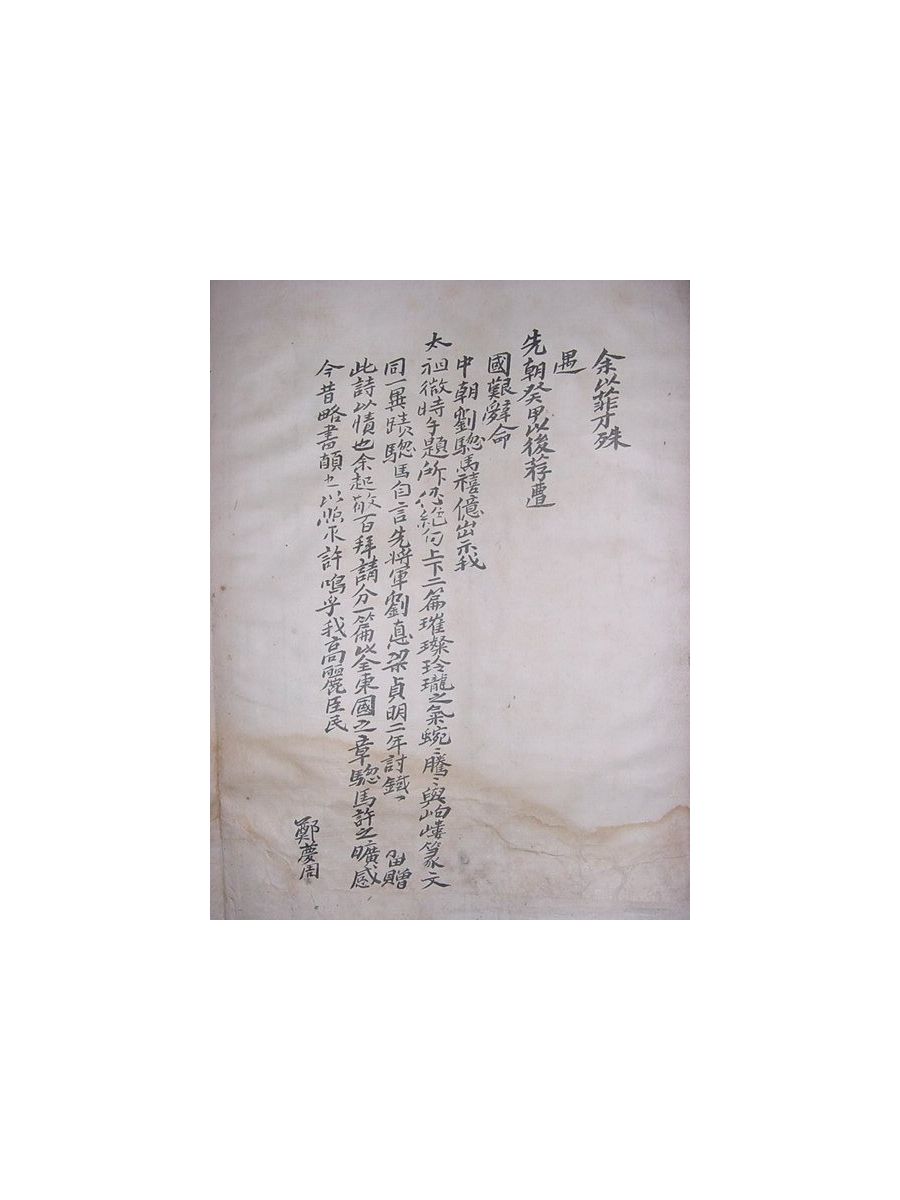 余以菲才殊
遇
先朝癸甲以後荐遭
國艱辭命
中朝劉驄馬禧億出示我
太祖微時手題所作絶句上下二篇璀璨玲瓏之氣蜿〻騰〻與岣嶁篆文
同一異蹟驄馬自言先將軍劉 梁貞明二年討鐵〻 留贈
此詩以情也余起敬百拜請分一篇此全東國之章驄馬許之曠感
今昔略書顛 以 許嗚乎我高麗臣民
鄭慶周